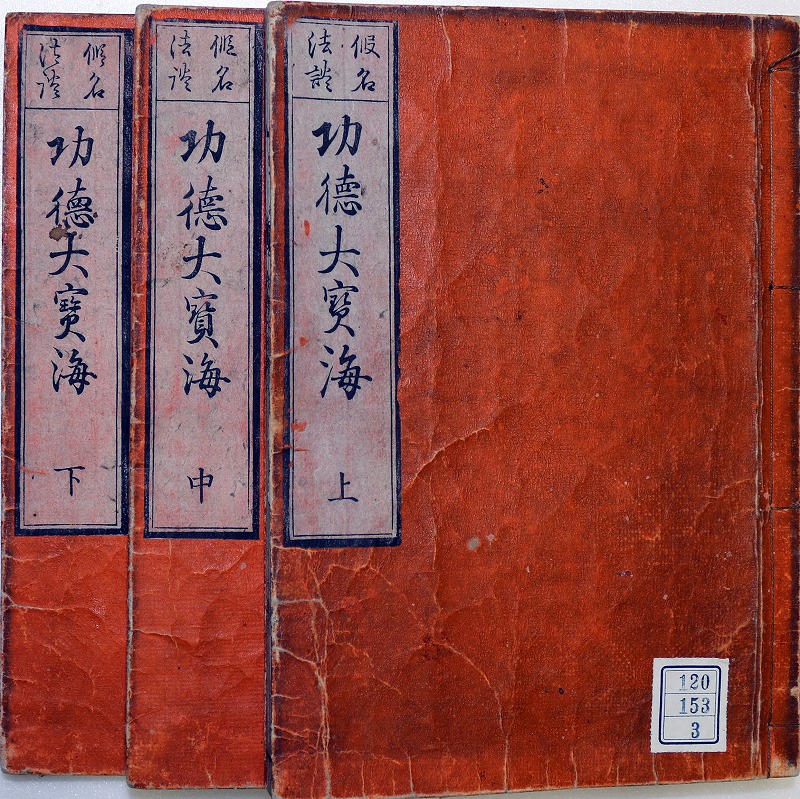 假名
法談
功德大寶海
上
假名
法談
功德大寳海
中
假名
法談
功德大寶海
下
120
153
3